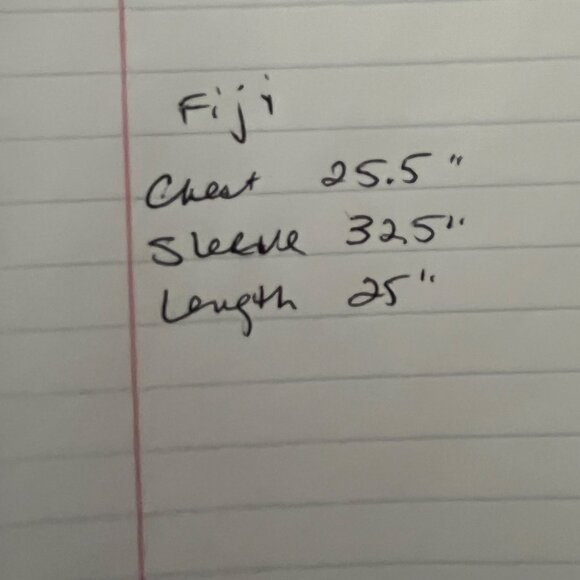 Fiji
Chest 25.5"
Sleeve 325"
Length 25"